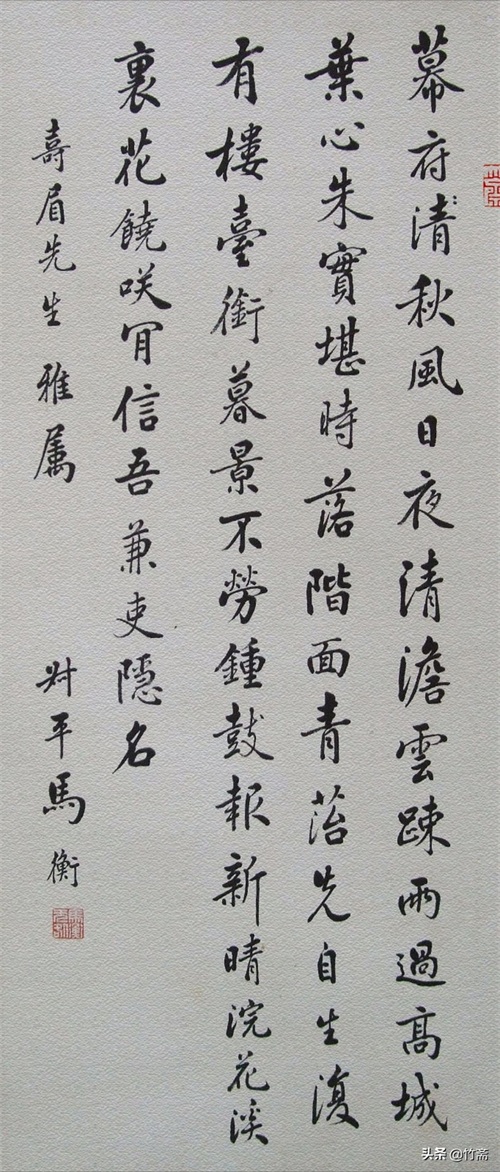 幕府清秋風日夜清澹雲疎雨過高城
葉心朱實堪時落階面青菭先自生復
有樓臺銜暮景不勞鍾鼓報新晴浣花溪
裏花饒咲肎信吾兼吏隱名
壽眉先生 雅属 尗平馬衡
头条 @竹斋